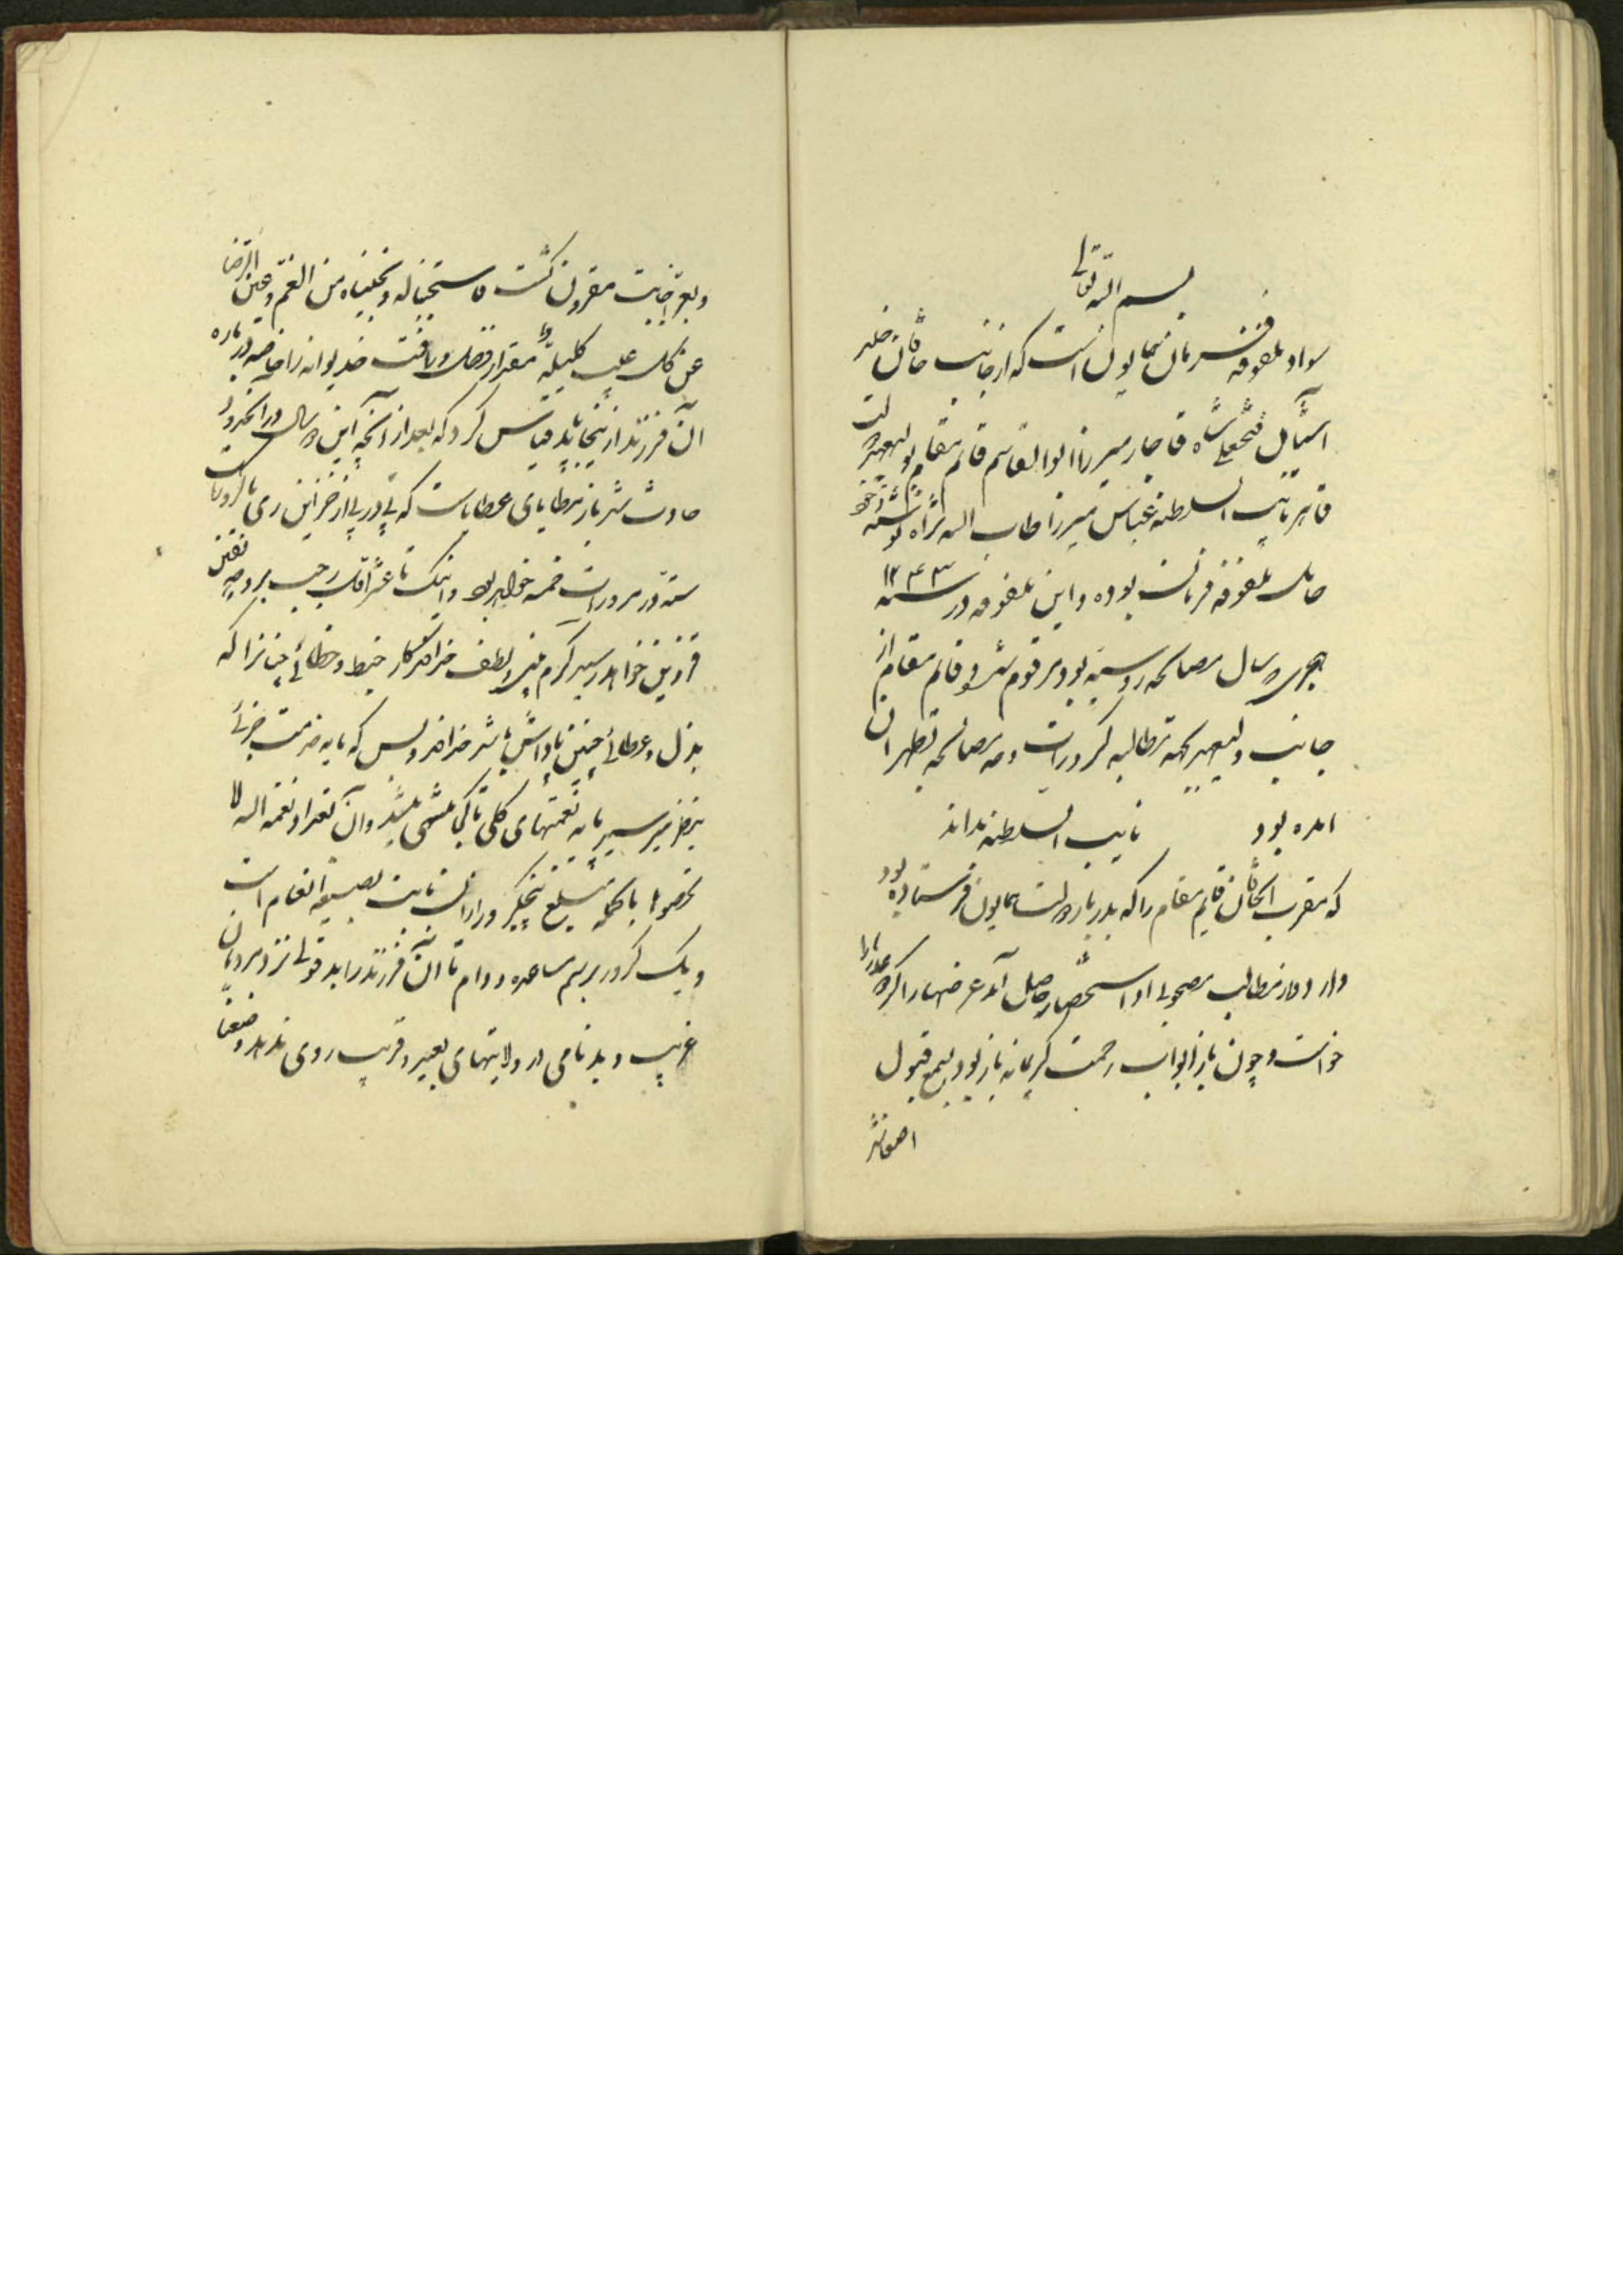 بسم الله تعالی
سواد ملفوفه فرمان همایون است که از جانب خاقان خلد
آشیان فتحعلی شاه قاجار میرزا ابوالقاسم قائم مقام بولیعهد دولت
قاهره نایب السلطنه عباس میرزا طاب الله ثراه نوشته
حامل ملفوفه فرمان بوده و این ملفوفه در سنه ۱۲۴۳
هجری در سال مصالحه روسیه بود مرقوم شد و قائم مقام از
جانب ولیعهد بجهة مطالبه کرورات وجه مصالحه بطهران
امده بود نایب السلطنه بداند
که مقرب الخاقان قایم مقام را که بدربار دولت همایون فرستاده بود
وارد و از مطالب مصحوبی او استحضار حاصل آمد عرضها را کرد و عذرها را
خواست و چون باز ابواب رحمت کریمانه باز بود بسمع قبول
اصغا شد
و بعز اجابت مقرون گشت فاستجبنا له و نجیناه من الغم و عین الرضا
عن کل عیب کلیلة مقدار فضل و رافت خدیوانه را خاصه درباره
آن فرزند از اینجا باید قیاس کرد که بعد از آنچه این در سال در آنحدود
حادث شد باز مطایای عطایاست که پی در پی از خزاین ری با کرورات
سته در مرورات خمسه خواهد بود و اینک تا عشر اول رجب بروجه نقدین
قزوین خواهد رسید کرم بین و لطف خداوندگار خبط و خطائی چنان را که
بذل و عطائی چنین پاداش باشد خداوند بس که مایه خدمت جزئی
بنظر میرسید پایه نعمتهای کلی تا کجا منتهی میشد وان تعدوا نعمة الله لا
تحصوها بالجمله مبلغ پنج کرور از آن بابت بصیغه انعام است
و یک کرور برسم مساعده و وام تا آن فرزند را بد قولی نزد مردمان
غریب و بدنامی در ولایتهای بعید و قریب روی ندهد و ضعفا